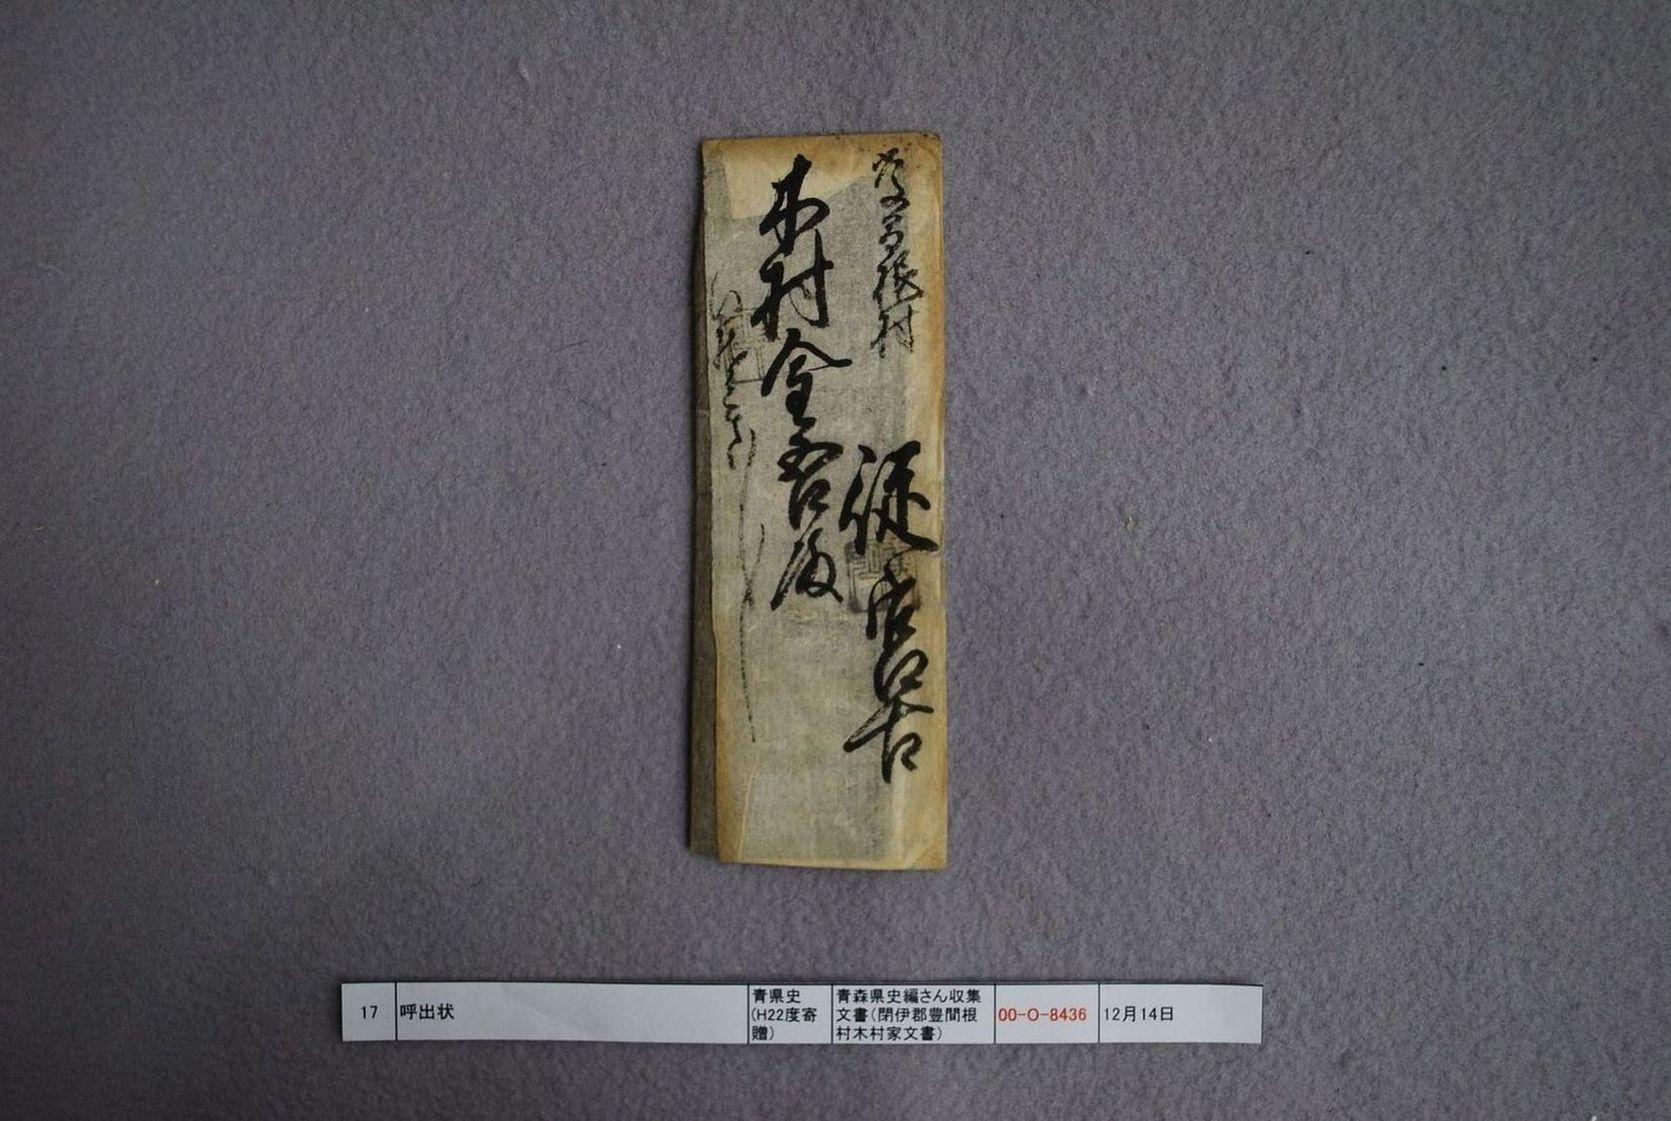 豊間根村
従宮古
木村金吾殿
17
呼出状
青県史
(H22度寄
贈)
青森県史編さん収集
文書(閉伊郡豊間根
村木村家文書)
00-O-8436
12月14日